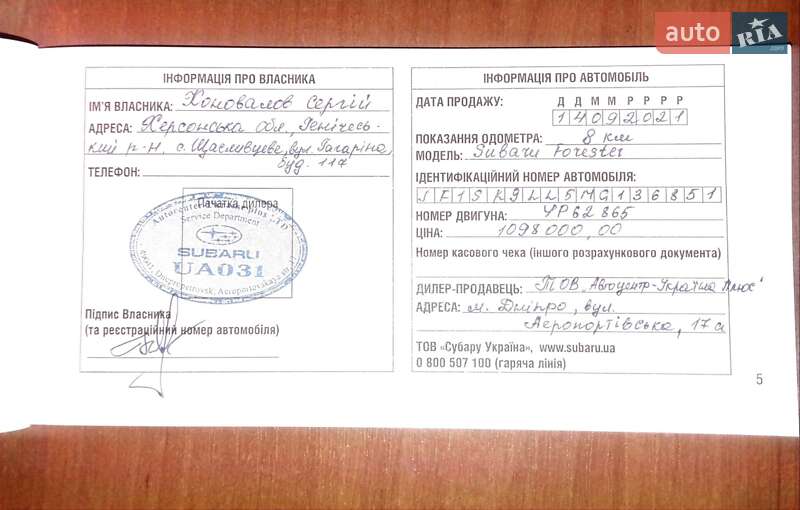 auto RIA .com
ІНФОРМАЦІЯ ПРО ВЛАСНИКА
ІМ'Я ВЛАСНИКА: Коновалов Сергій
АДРЕСА: Херсонська обл., Генічесь-
кий р-н, с. Щасливцеве, вул. Гагаріна,
буд. 117
ТЕЛЕФОН:
Печатка дилера
Service Department
SUBARU
UA031
Підпис Власника
(та реєстраційний номер автомобіля)
ІНФОРМАЦІЯ ПРО АВТОМОБІЛЬ
ДАТА ПРОДАЖУ: Д Д М М Р Р Р Р
14092021
ПОКАЗАННЯ ОДОМЕТРА: 8 км
МОДЕЛЬ: Subaru Forester
ІДЕНТИФІКАЦІЙНИЙ НОМЕР АВТОМОБІЛЯ:
JF1SK9LL5MG136851
НОМЕР ДВИГУНА: YP62865
ЦІНА: 1098000,00
Номер касового чека (іншого розрахункового документа)
ДИЛЕР-ПРОДАВЕЦЬ: ТОВ „Автоцентр-Україна Плюс"
АДРЕСА: м. Дніпро, вул.
Аеропортівська, 17а
ТОВ «Субару Україна», www.subaru.ua
0 800 507 100 (гаряча лінія)
5